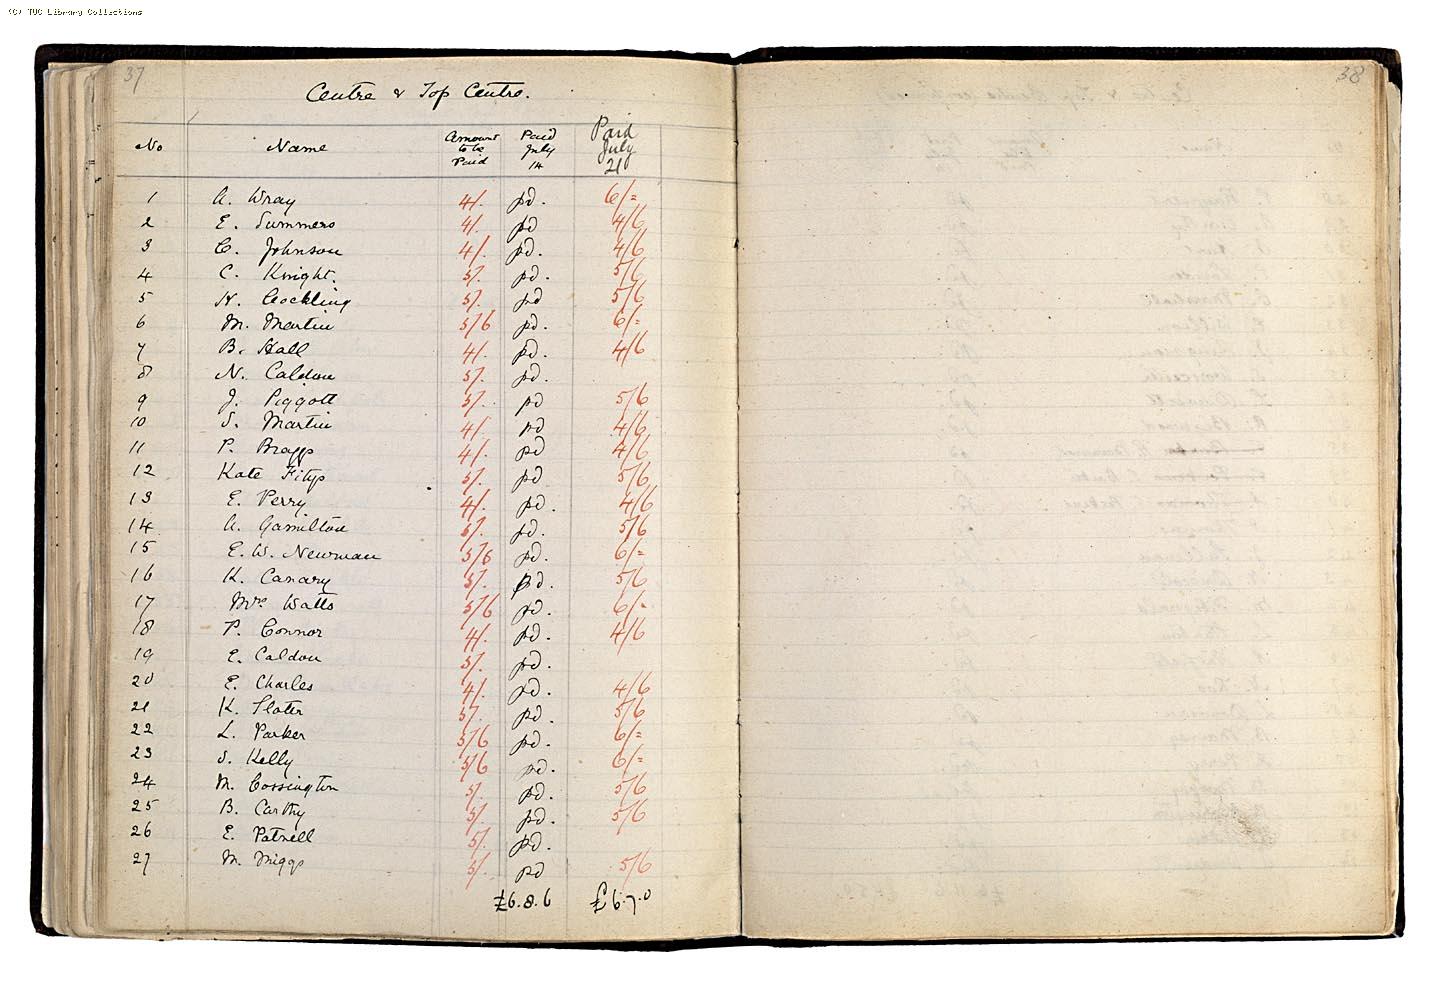 (C) TUC Library Collections
37
38
Centre & Top Centre.
No Name Amount to be Paid Paid July 14 Paid July 21
1 A. Wray 4/. pd. 6/=
2 E. Summers 4/. pd 4/6
3 C. Johnson 4/. pd. 4/6
4 C. Knight. 5/. pd. 5/6
5 N. Cockling 5/. pd 5/6
6 M. Martin 5/6 pd. 6/=
7 B. Hall 4/. pd. 4/6
8 N. Caldon 5/. pd.
9 J. Piggott 5/. pd 5/6
10 S. Martin 4/. pd 4/6
11 P. Braggs 4/. pd 4/6
12 Kate 5/. pd 5/6
13 E. Perry 4/. pd. 4/6
14. A. Gamilton 5/. pd. 5/6
15 E. W. Newman 5/6 pd. 6/=
16 K. Canary 5/. pd. 5/6
17 Mrs Watts 5/6 pd. 6/-
18 P. Connor 4/. pd. 4/6
19 E. Caldon 5/. pd.
20 E. Charles 4/. pd. 4/6
21 K. Slater 5/. pd. 5/6
22 L. Parker 5/6 pd. 6/=
23 S. Kelly 5/6 pd. 6/=
24 M. Cossington 5/. pd. 5/6
25 B. Carthy 5/. pd. 5/6
26 E. Patnell 5/. pd.
27 M. 5/. pd 5/6
£6.8.6 £6.7.0